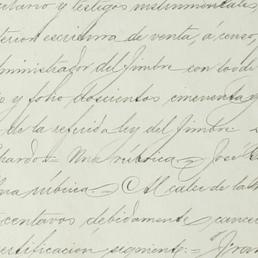 tario y testigos instrumentales,
terior escritura de venta, á censo,
dministrador del Timbre con lo de
y foho doscientos cincuenta y
de la referida ley del Timbre
chardo = Una rúbrica = José
na rúbrica = Al calce de la
centavos debidamente cance
ertificacion segment: = Fran